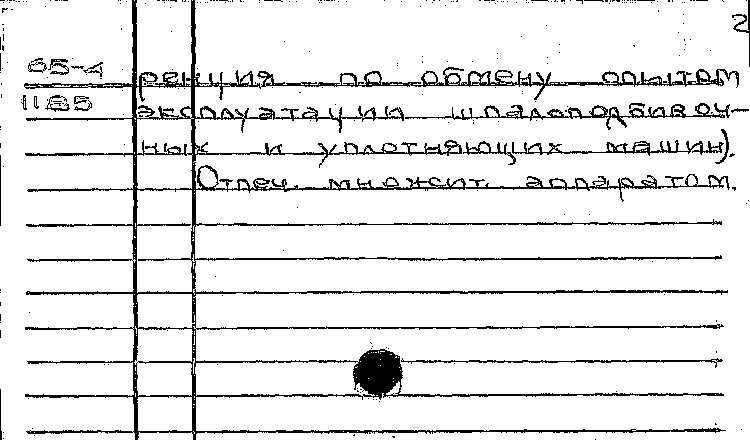 2
65-4 ренция по обмену опытом
1185 эксплуатации шпалоподбивоч-
ных и уплотняющих машин).
Отпеч. множит. аппаратом.